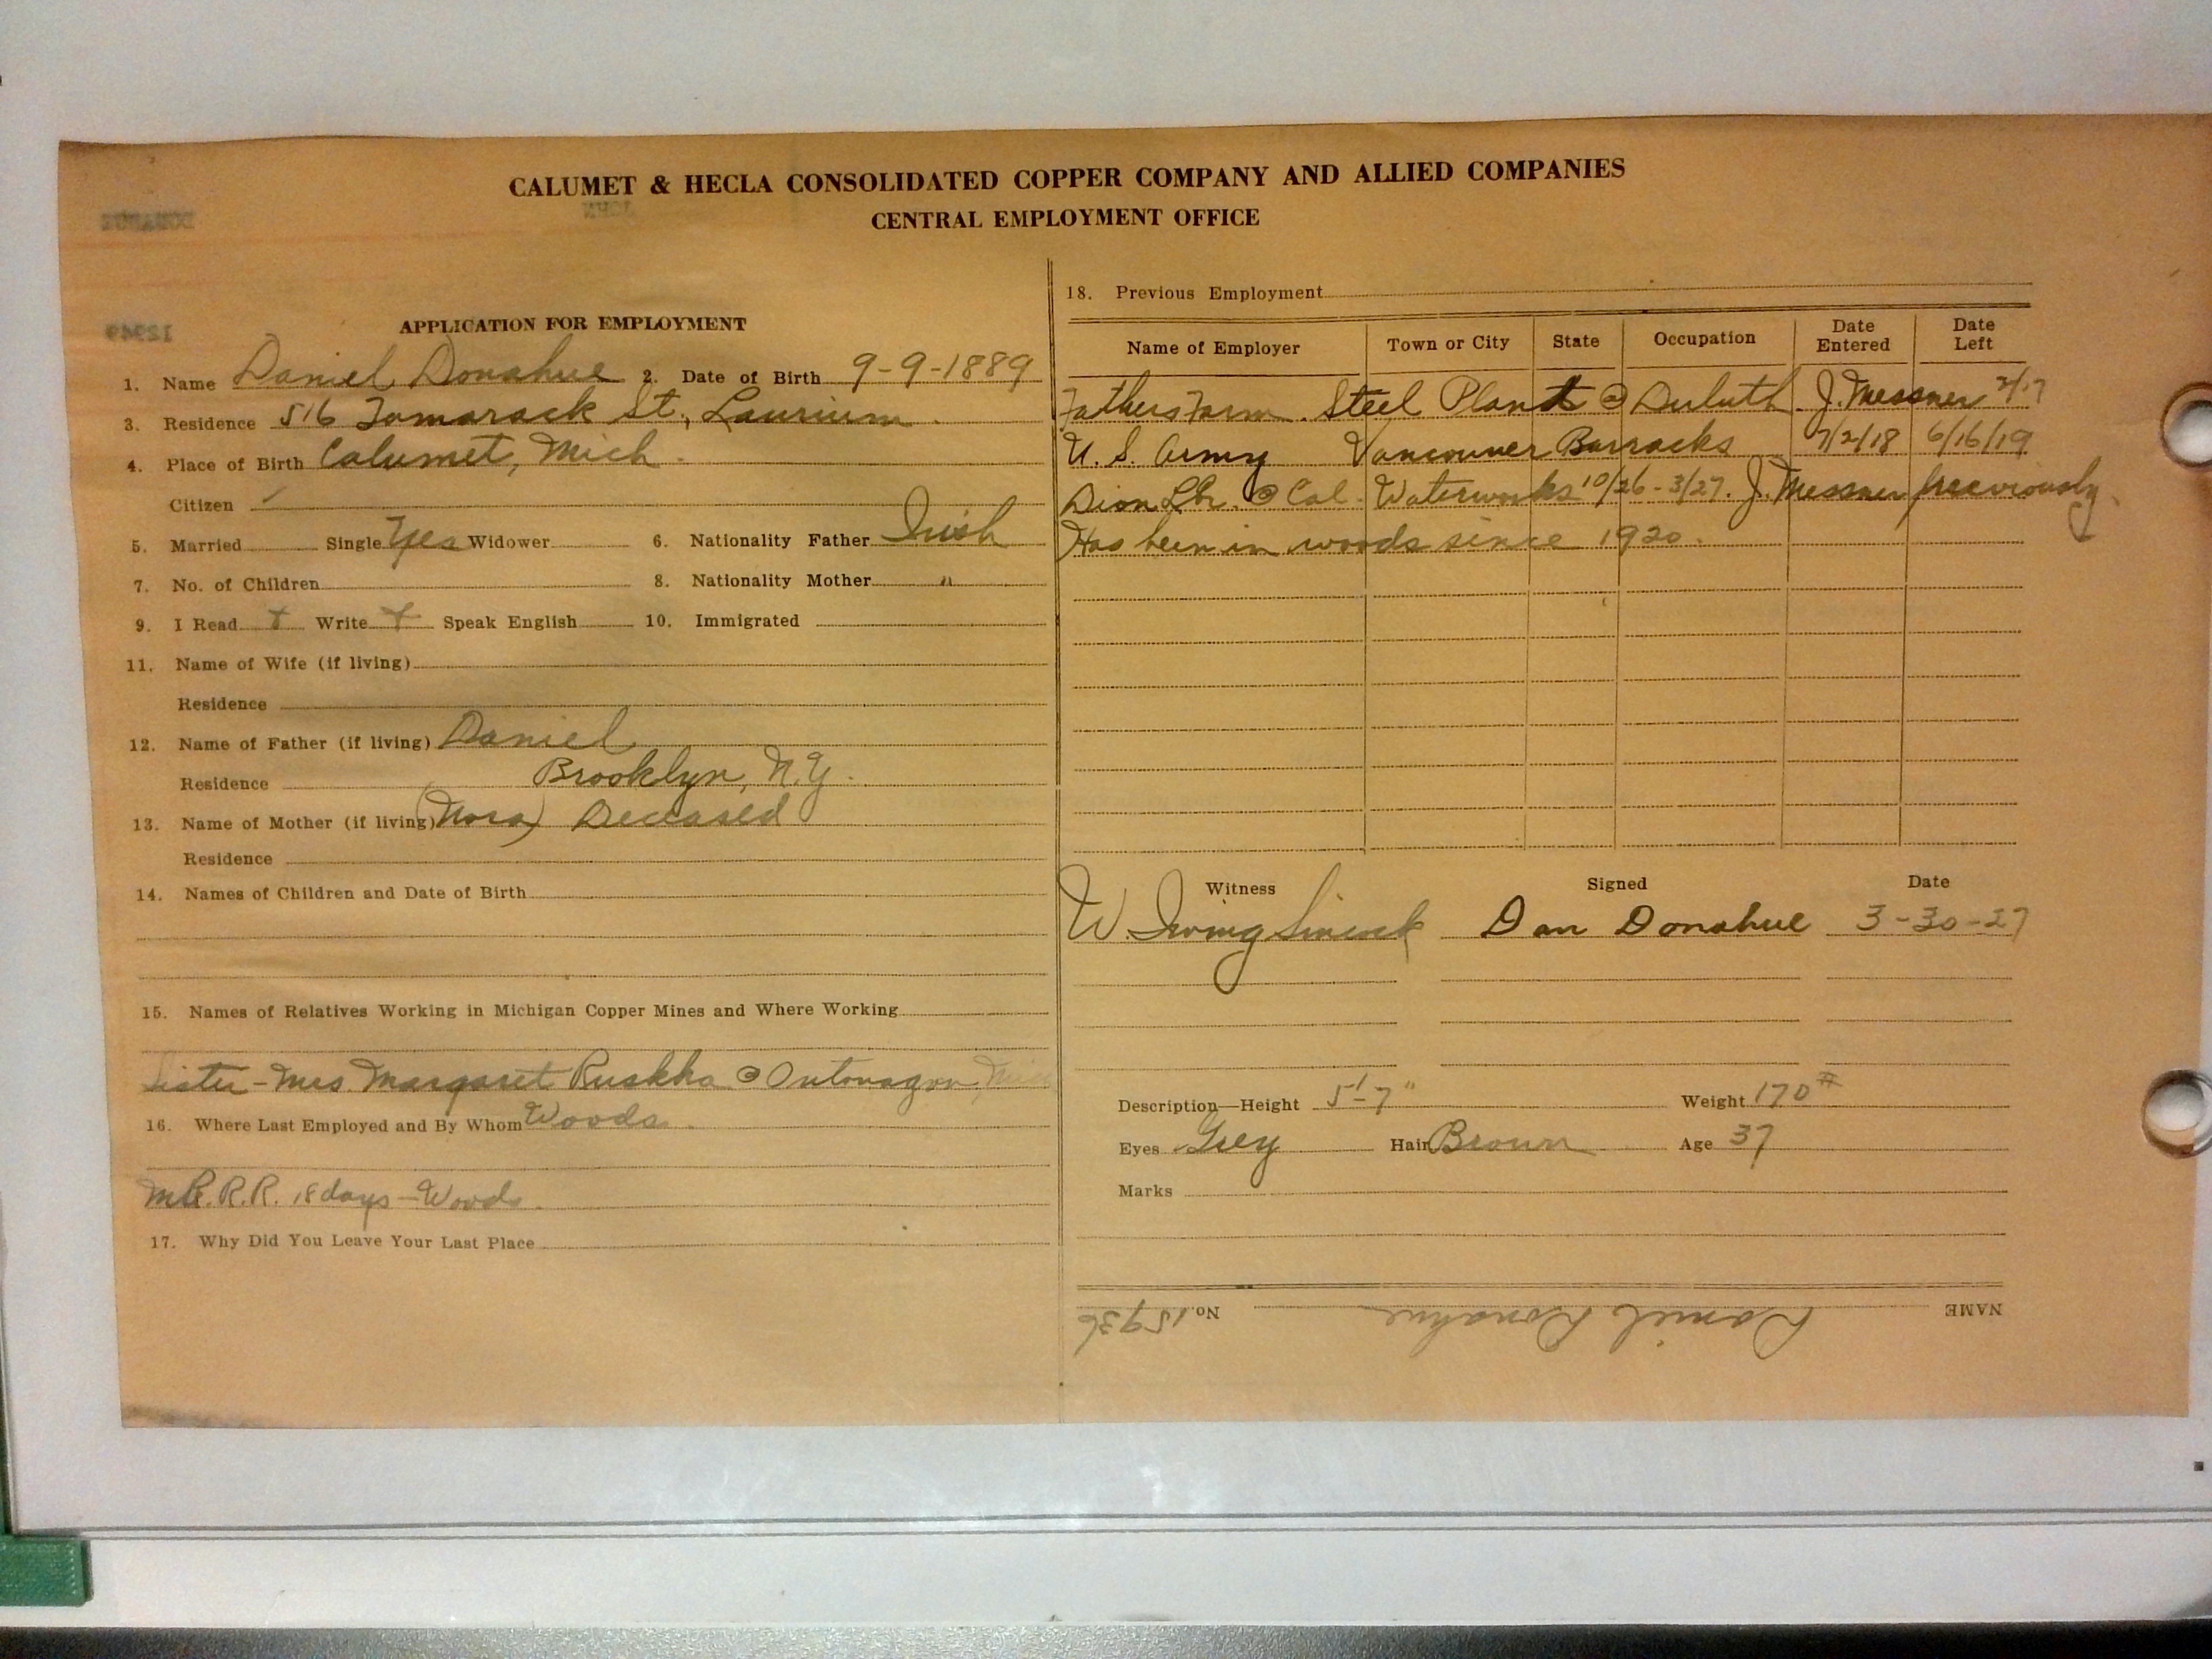 CALUMET & HECLA CONSOLIDATED COPPER COMPANY AND ALLIED COMPANIES
CENTRAL EMPLOYMENT OFFICE
APPLICATION FOR EMPLOYMENT
1. Name Daniel Donahue 2. Date of Birth 9-9-1889
3. Residence 516 Tamarack St., Laurium.
4. Place of Birth Calumet, Mich.
Citizen ✓
5. Married Single Yes Widower 6. Nationality Father Irish
7. No. of Children 8. Nationality Mother "
9. I Read + Write + Speak English 10. Immigrated
11. Name of Wife (if living)
Residence
12. Name of Father (if living) Daniel
Residence Brooklyn, N.Y.
13. Name of Mother (if living) (Nora) Deceased
Residence
14. Names of Children and Date of Birth
15. Names of Relatives Working in Michigan Copper Mines and Where Working
Sister - Mrs. Margaret @ Ontonagon, Mich
16. Where Last Employed and By Whom Woods.
R.R. 18 days - Woods.
17. Why Did You Leave Your Last Place
18. Previous Employment
Name of Employer Town or City State Occupation Date Entered Date Left
Fathers Farm. Steel Plant @ Duluth. J. Messner 2/17
U. S. Army Vancouver Barracks 7/2/18 6/16/19
Dion Lbr. @ Cal. Waterworks 10/26 - 3/27. J. Messner previously
Has been in woods since 1920.
Witness Signed Date
W. Irving Dan Donahue 3-30-27
Description—Height 5'-7" Weight 170#
Eyes Grey Hair Brown Age 37
Marks
NAME Daniel Donahue No. 15936